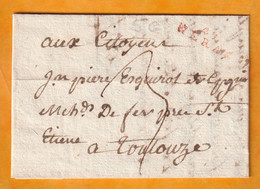 aux Citoyens
Jn pierre Esquirol et
Mchds De fer pres St
Etiene
a Toulouze